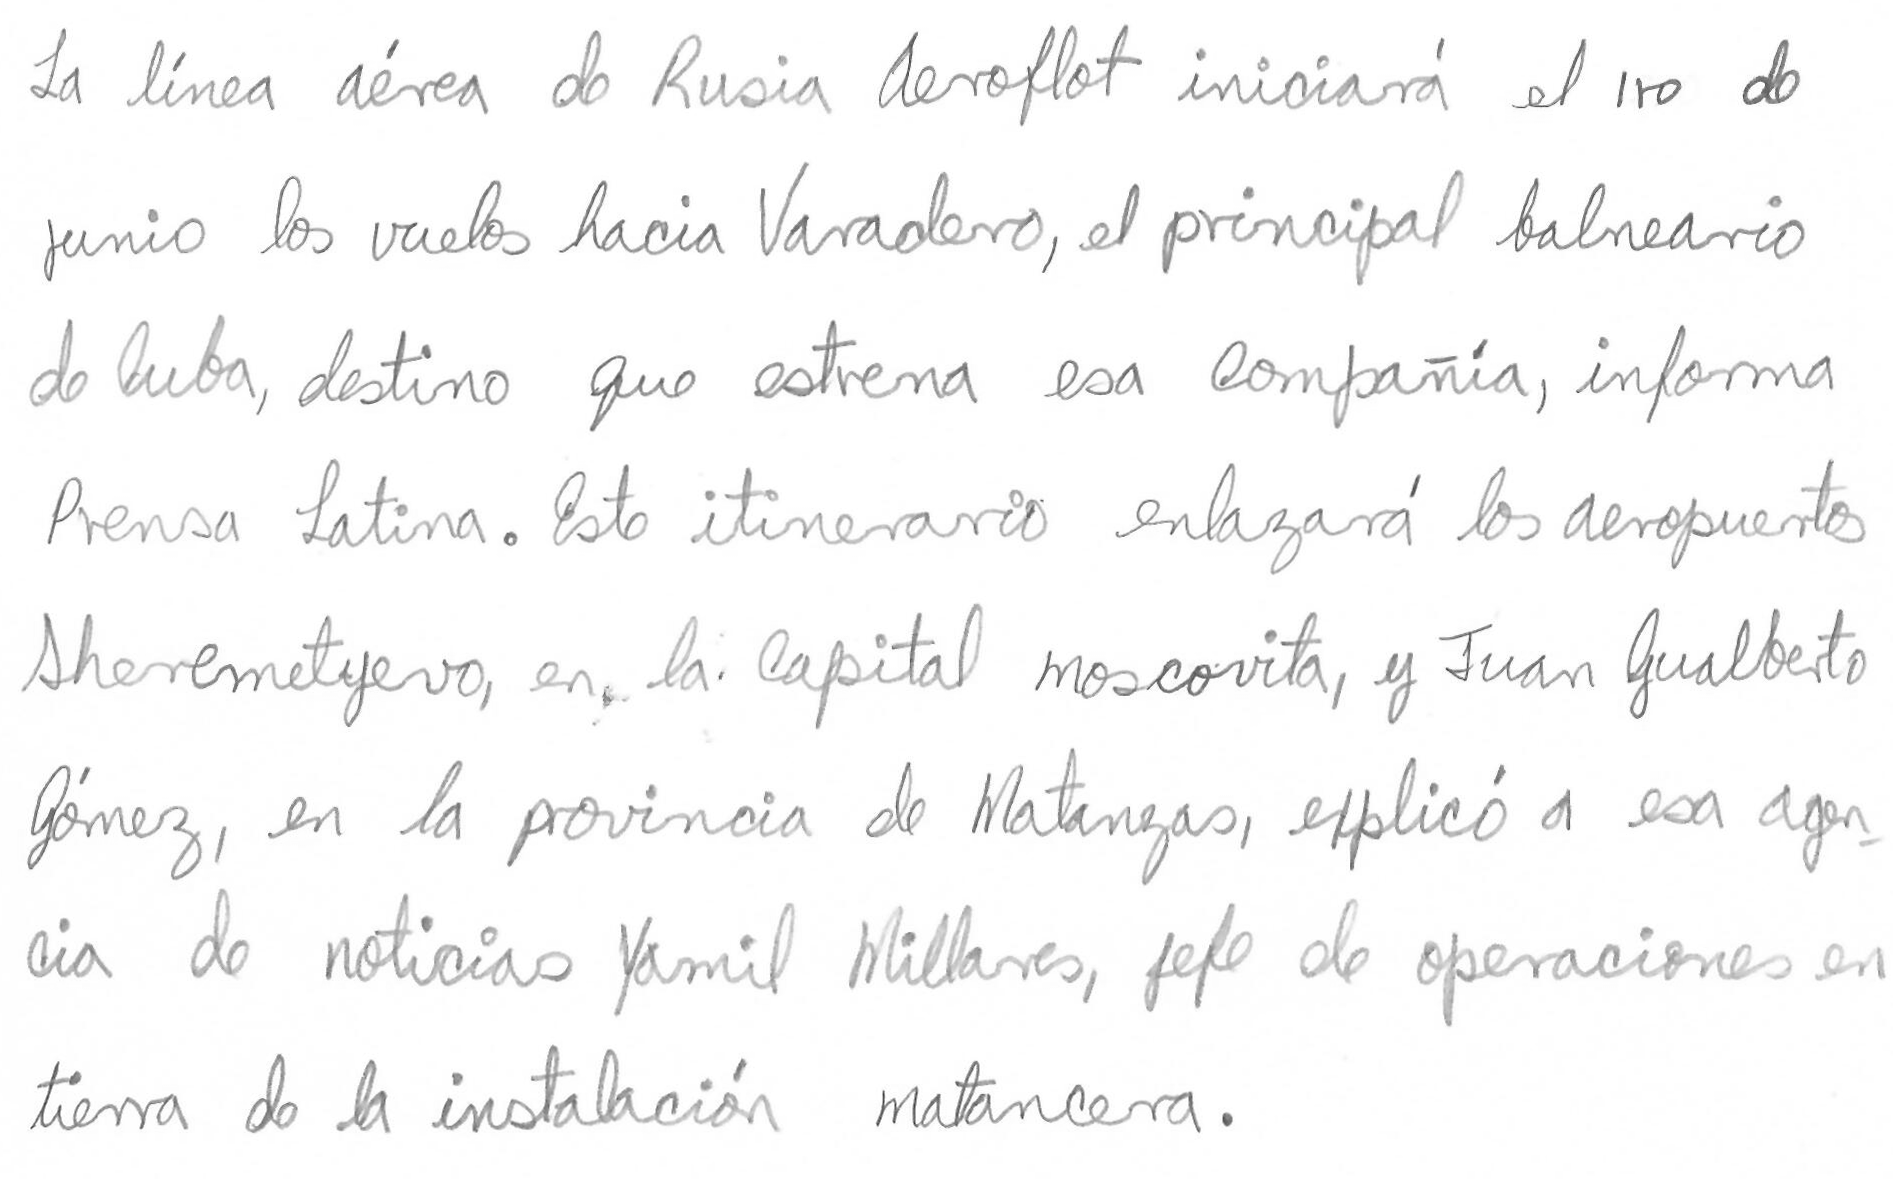 La línea aérea de Rusia Aeroflot iniciará el 1ro de
junio los vuelos hacia Varadero, el principal balneario
de Cuba, destino que estrena esa compañía, informa
Prensa Latina. Este itinerario enlazará los aeropuertos
Sheremetyevo, en la capital moscovita, y Juan Gualberto
Gómez, en la provincia de Matanzas, explicó a esa agen-
cia de noticias Yamil Millares, jefe de operaciones en
tierra de la instalación matancera.